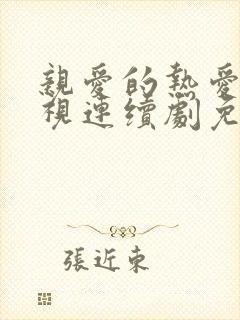 親愛的熱愛
視連續劇免
張近東